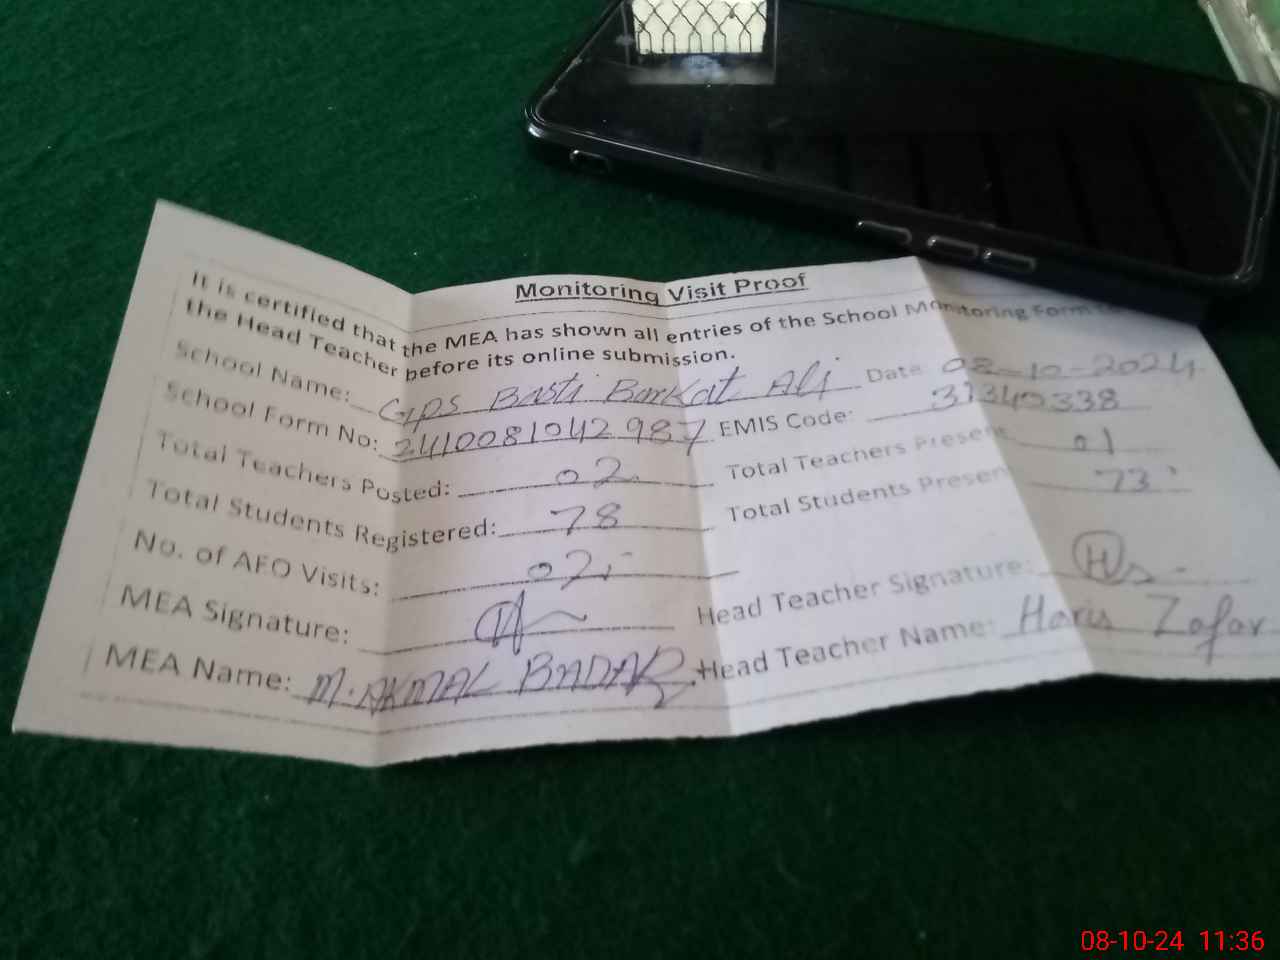 Monitoring Visit Proof
It is certified that the MEA has shown all entries of the School Monitoring Form
the Head Teacher before its online submission.
School Name: GPS Basti Barkat Ali Date: 08-10-2024
School Form No: 2410081042987 EMIS Code: 31340338
Total Teachers Posted: 02 Total Teachers Present 01
Total Students Registered: 78 Total Students Present 73
No. of AEO Visits: 02
MEA Signature: Head Teacher Signature:
MEA Name: M. AKMAL BADAR Head Teacher Name: Haris Zafar
08-10-24 11:36